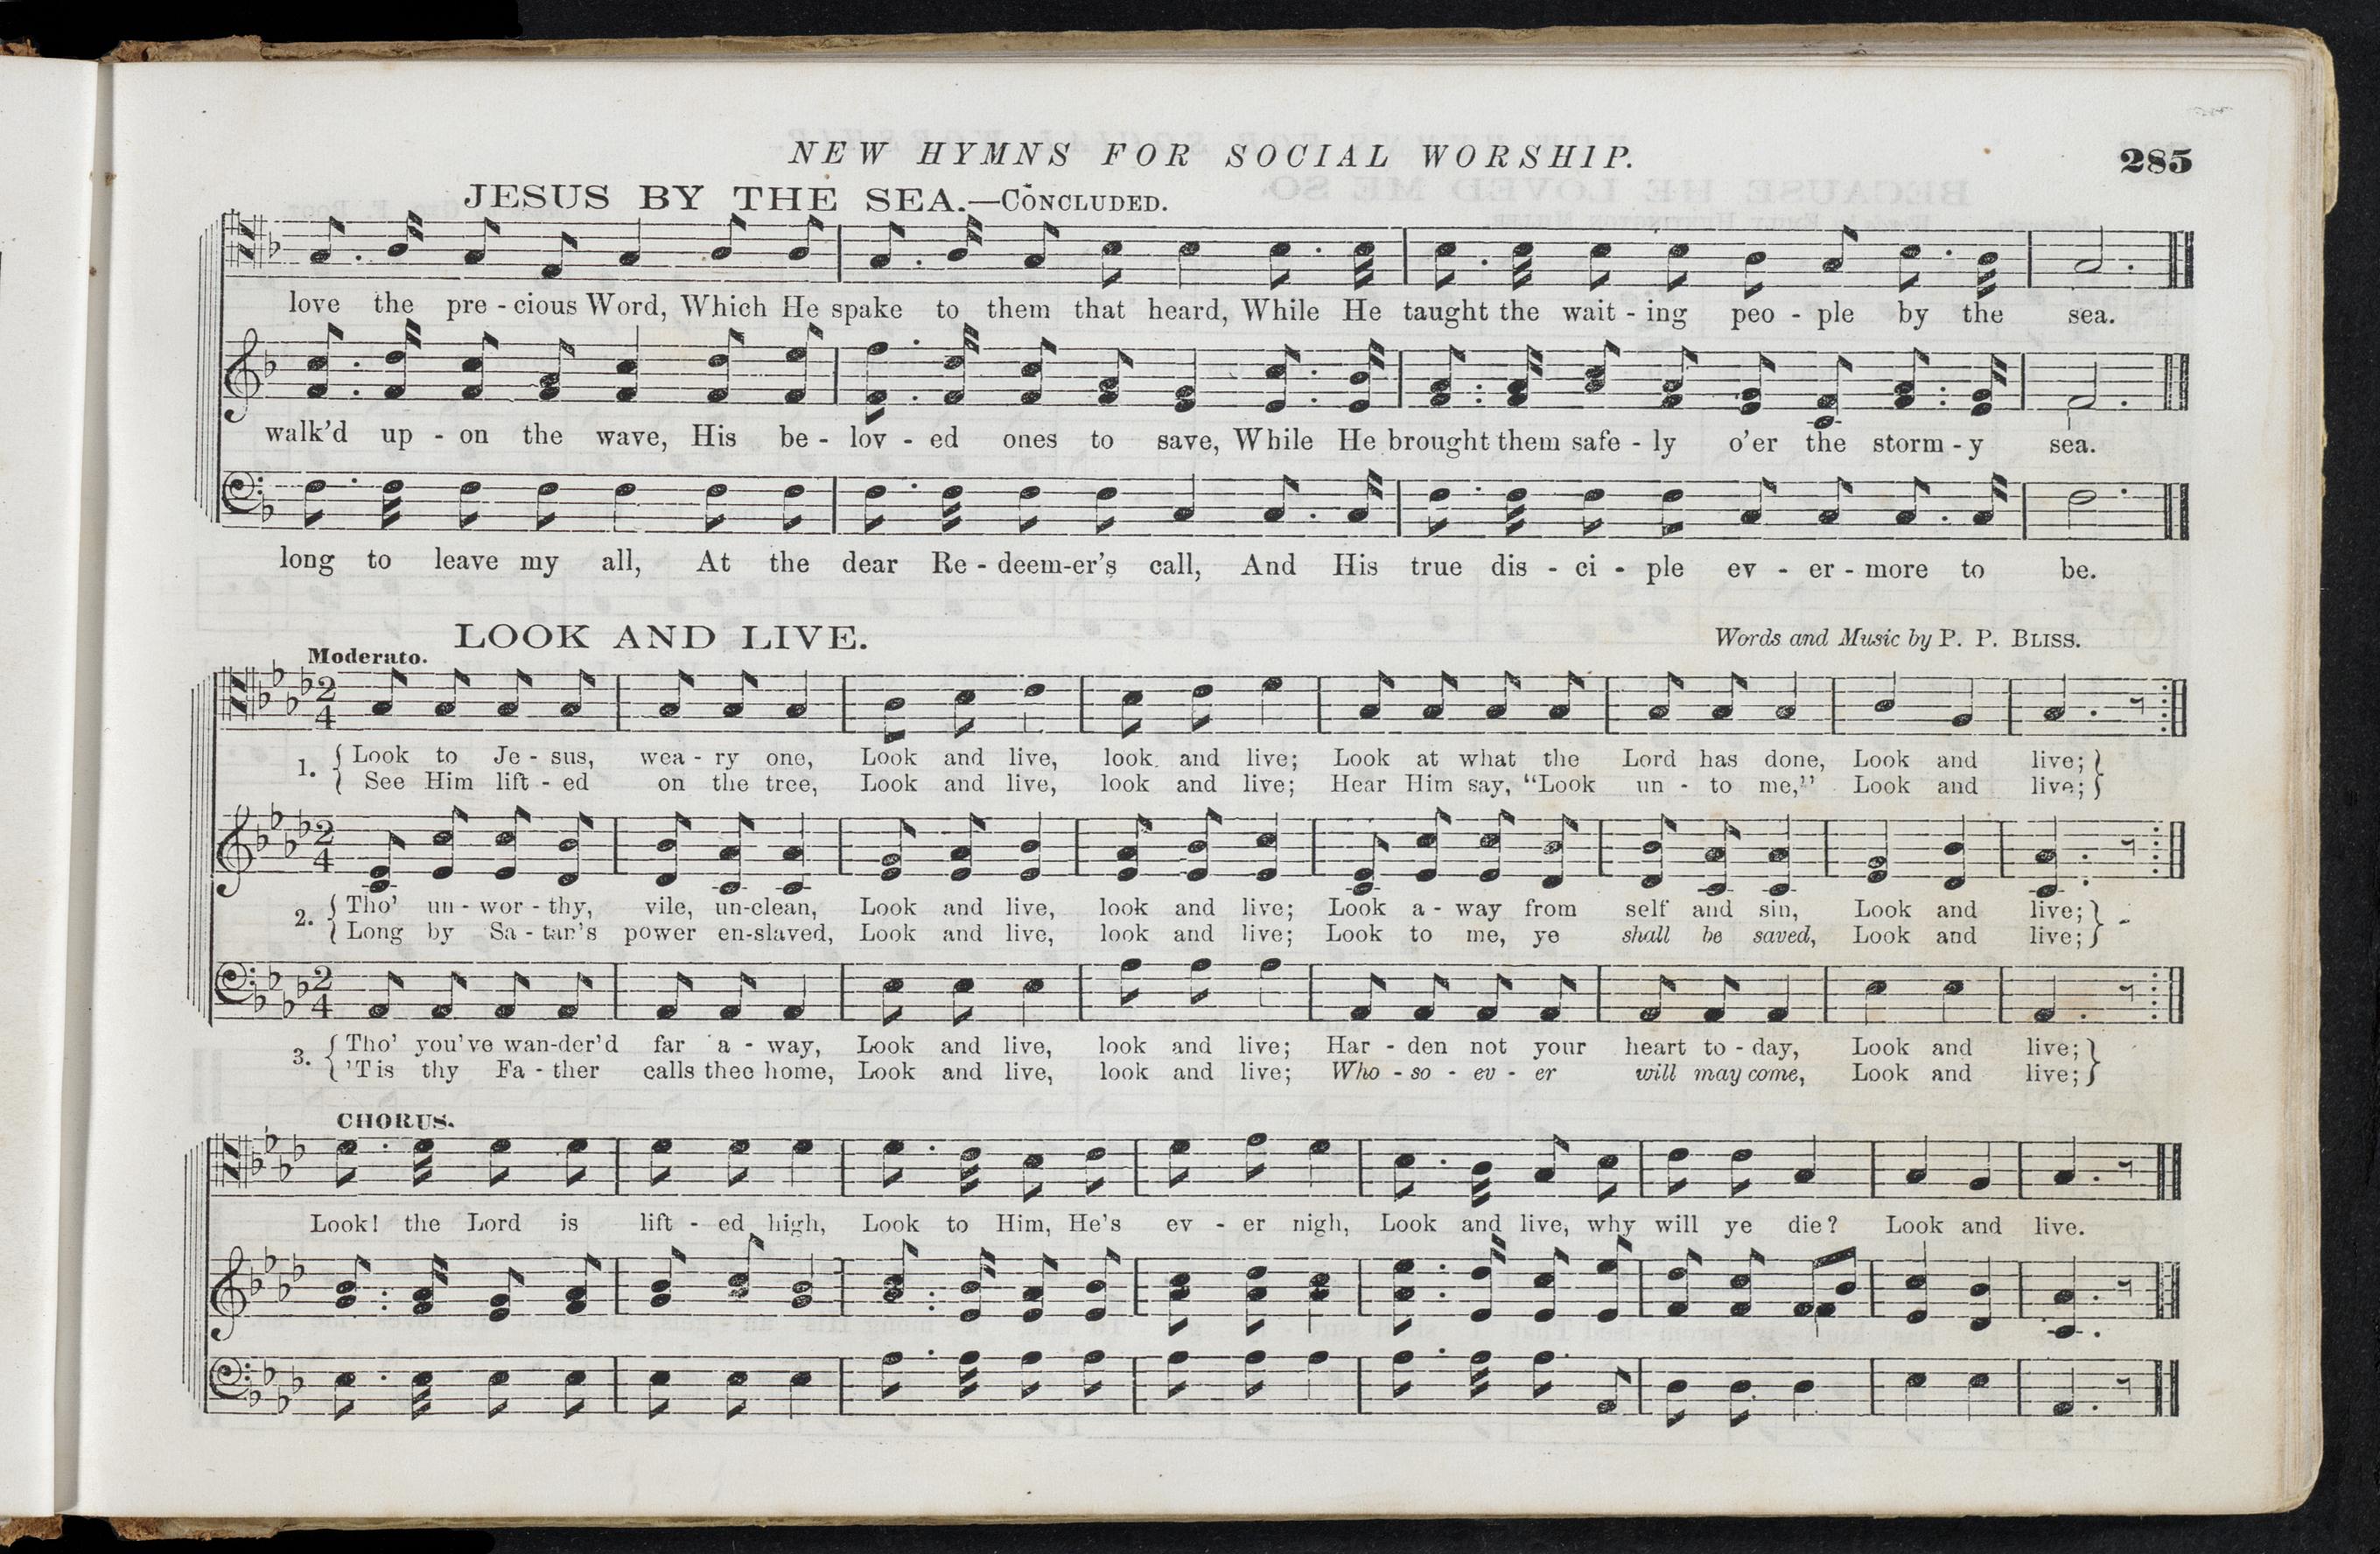 NEW HYMNS FOR SOCIAL WORSHIP.
285
JESUS BY THE SEA.—CONCLUDED.
love the pre - cious Word, Which He spake to them that heard, While He taught the wait - ing peo - ple by the sea.
walk'd up - on the wave, His be - lov - ed ones to save, While He brought them safe - ly o'er the storm - y sea.
long to leave my all, At the dear Re - deem-er's call, And His true dis - ci - ple ev - er - more to be.
LOOK AND LIVE.
Words and Music by P. P. BLISS.
Moderato.
2
4
1. Look to Je - sus, wea - ry one, Look and live, look and live; Look at what the Lord has done, Look and live;
See Him lift - ed on the tree, Look and live, look and live; Hear Him say, "Look un - to me," Look and live;
2
4
2. Tho' un - wor - thy, vile, un-clean, Look and live, look and live; Look a - way from self and sin, Look and live;
Long by Sa - tan's power en-slaved, Look and live, look and live; Look to me, ye shall be saved, Look and live;
2
4
3. Tho' you've wan-der'd far a - way, Look and live, look and live; Har - den not your heart to - day, Look and live;
'Tis thy Fa - ther calls thee home, Look and live, look and live; Who - so - ev - er will may come, Look and live;
CHORUS.
Look! the Lord is lift - ed high, Look to Him, He's ev - er nigh, Look and live, why will ye die? Look and live.